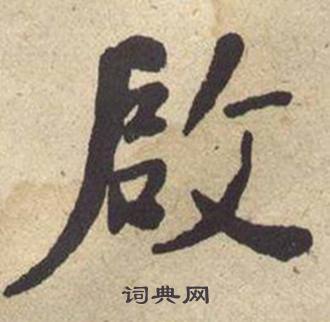 啟
词典网